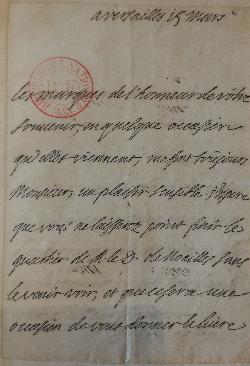 a versailles 15 mars
les marques de l'honneur de vôtre
souvenir, en quelque occasion
qu'elles viennent, me font toûjours
Monsieur, un plaisir sensible. j'espere
que vous ne laisserez point finir le
quartier de M. le D. de Noailles sans
le venir voir, et que ce sera une
occasion de vous donner